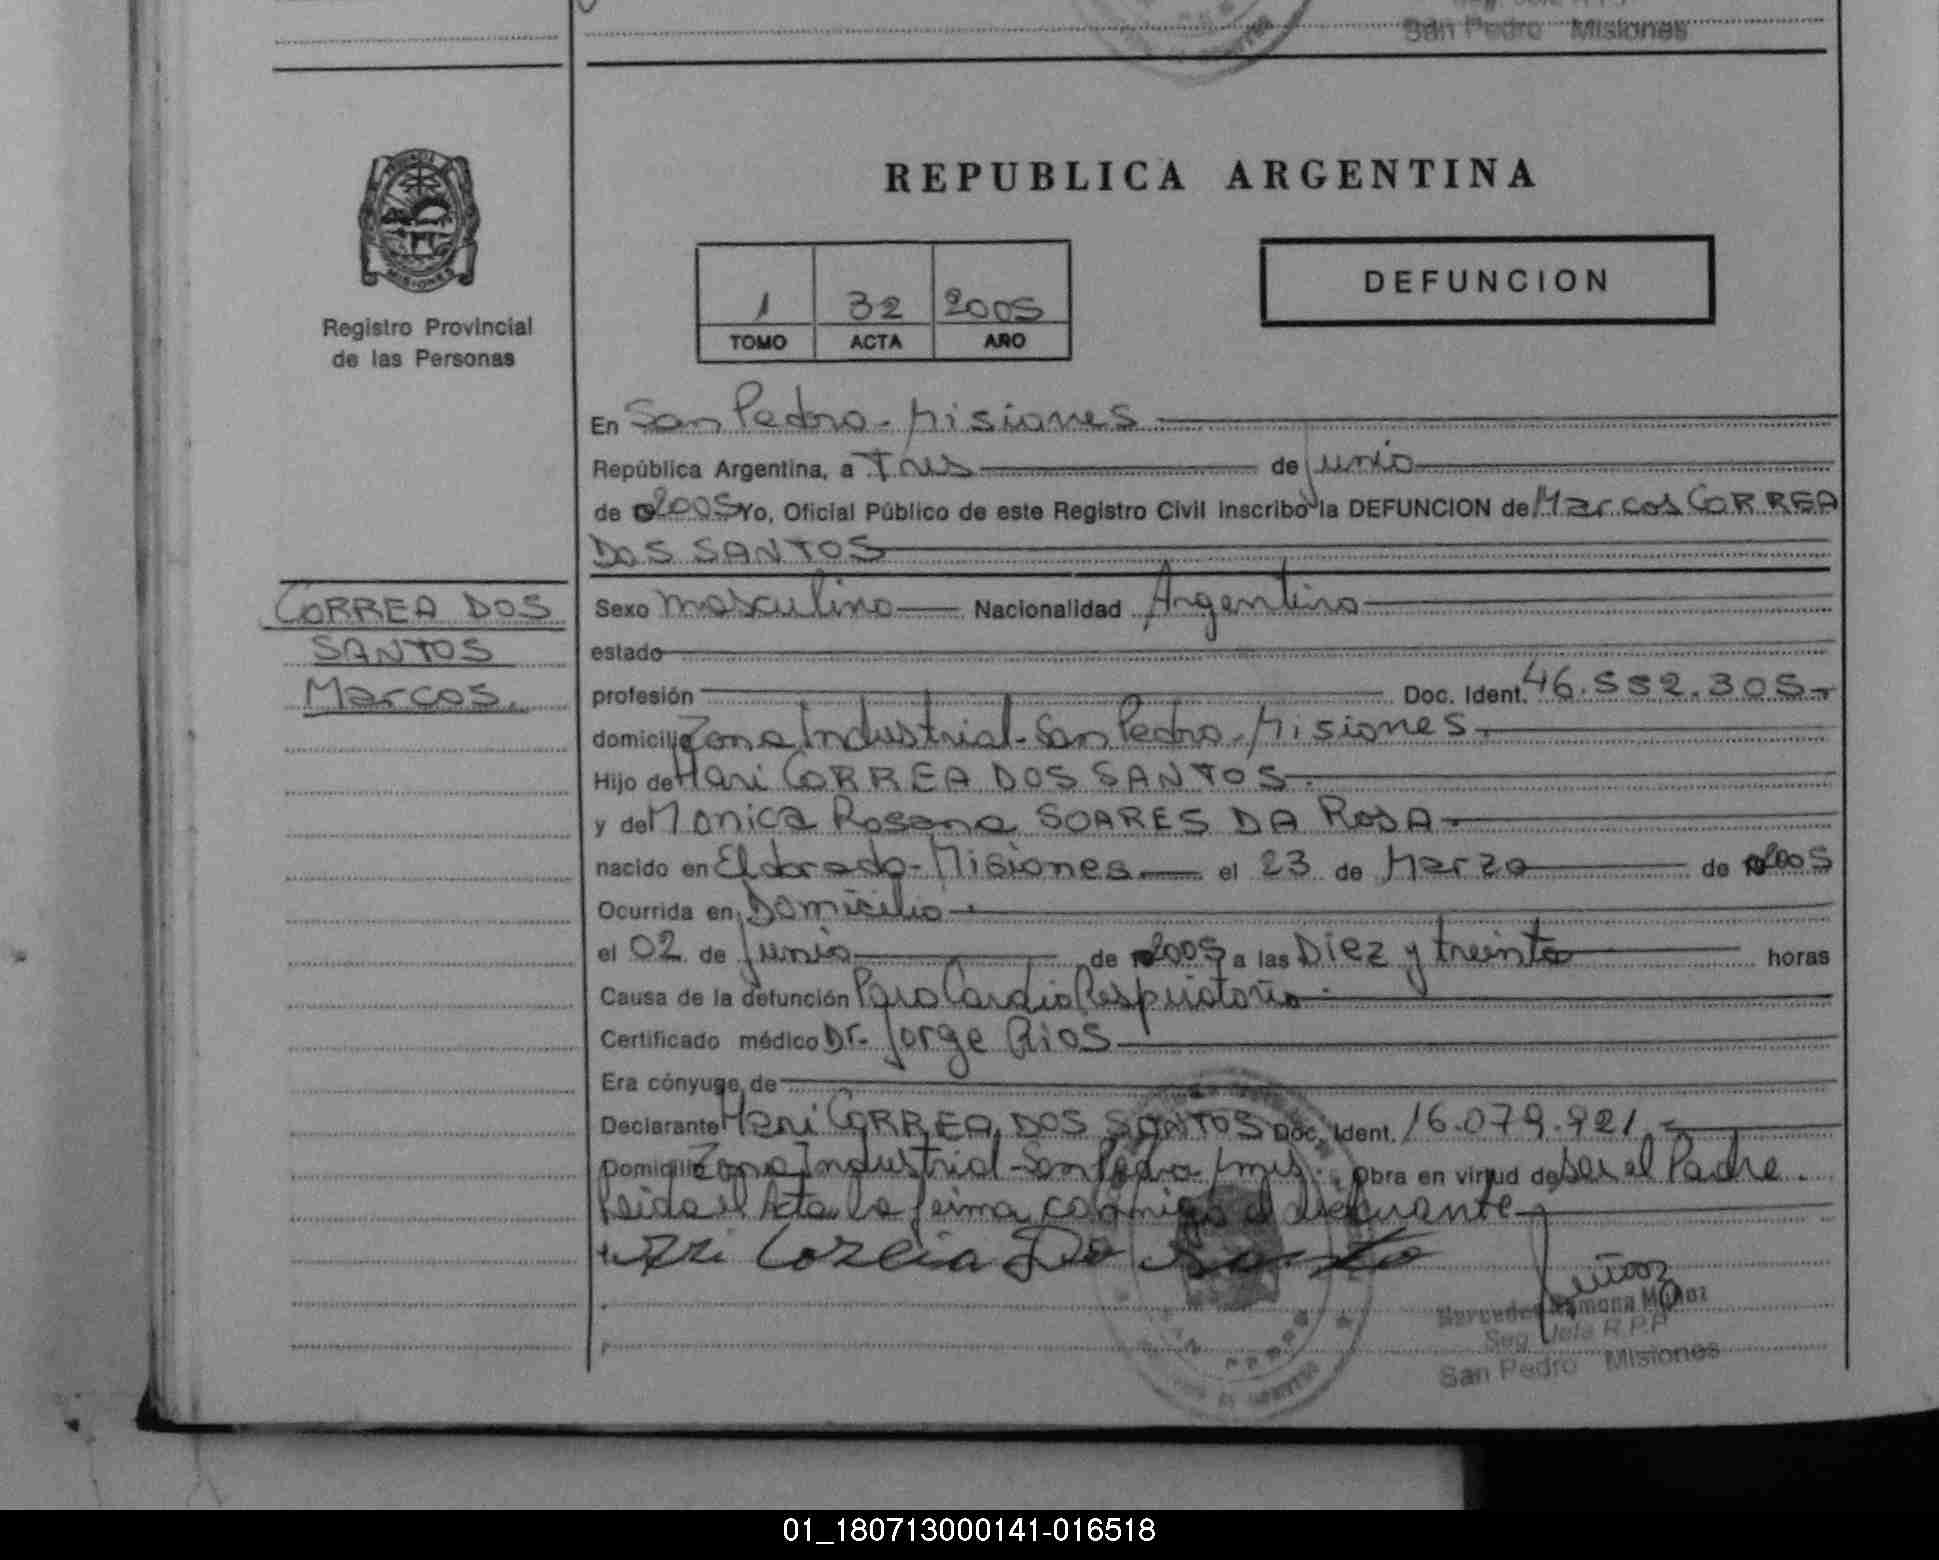 San Pedro Misiones
REPUBLICA ARGENTINA
MISIONES
Registro Provincial
de las Personas
1 32 2005
TOMO ACTA AÑO
DEFUNCION
En San Pedro - Misiones
República Argentina, a Tres de junio
de 2005 Yo, Oficial Público de este Registro Civil inscribo la DEFUNCION de Marcos CORREA
DOS SANTOS
CORREA DOS
SANTOS
Marcos.
Sexo masculino Nacionalidad Argentino
estado
profesión Doc. Ident. 46.552.305.-
domicilio Zona Industrial - San Pedro - Misiones.
Hijo de Mari CORREA DOS SANTOS.
y de Monica Rosana SOARES DA ROSA
nacido en Eldorado - Misiones el 23 de Marzo de 2005
Ocurrida en Domicilio
el 02 de junio de 2005 a las Diez y treinta horas
Causa de la defunción Paro Cardio Respiratorio.
Certificado médico Dr. Jorge Rios
Era cónyuge de
Declarante Mari CORREA DOS SANTOS Doc. Ident. 16.079.921.-
Domicilio Zona Industrial - San Pedro Mnes. obra en virtud de ser el Padre.
Leida el Acta la firma conmigo el declarante
Correia Do
Mercedes Ramona Muñoz
Seg. Jefa R.P.P.
San Pedro Misiones
01_180713000141-016518